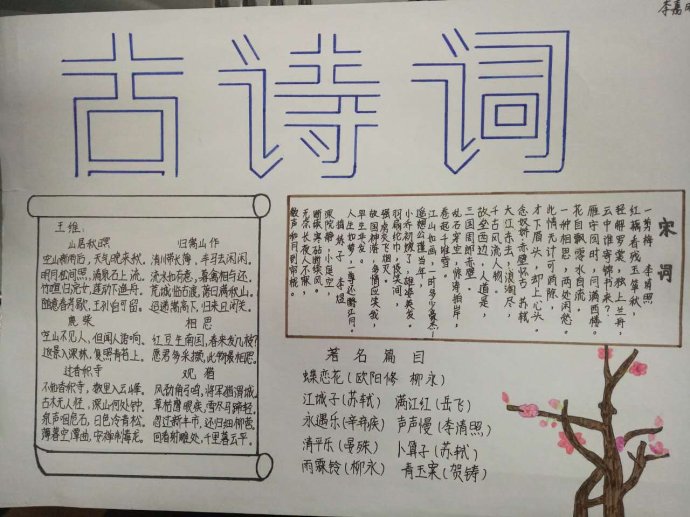 李嘉
古诗词
王维:
山居秋暝
空山新雨后,天气晚来秋。
明月松间照,清泉石上流。
竹喧归浣女,莲动下渔舟。
随意春芳歇,王孙自可留。
鹿柴
空山不见人,但闻人语响。
返景入深林,复照青苔上。
过香积寺
不知香积寺,数里入云峰。
古木无人径,深山何处钟。
泉声咽危石,日色冷青松。
薄暮空潭曲,安禅制毒龙。
归嵩山作
清川带长薄,车马去闲闲。
流水如有意,暮禽相与还。
荒城临古渡,落日满秋山。
迢递嵩高下,归来且闭关。
相思
红豆生南国,春来发几枝?
愿君多采撷,此物最相思。
观猎
风劲角弓鸣,将军猎渭城。
草枯鹰眼疾,雪尽马蹄轻。
忽过新丰市,还归细柳营。
回看射雕处,千里暮云平。
宋词
一剪梅 李清照
红藕香残玉簟秋,
轻解罗裳,独上兰舟,
云中谁寄锦书来?
雁字回时,月满西楼。
花自飘零水自流,
一种相思,两处闲愁。
此情无计可消除,
才下眉头,却上心头。
念奴娇 赤壁怀古 苏轼
大江东去,浪淘尽,
千古风流人物。
故垒西边,人道是,
三国周郎赤壁。
乱石穿空,惊涛拍岸,
卷起千堆雪。
江山如画,一时多少豪杰!
遥想公瑾当年,
小乔初嫁了,雄姿英发。
羽扇纶巾,谈笑间,
强虏灰飞烟灭。
故国神游,多情应笑我,
早生华发。
人生如梦,一尊还酹江月。
捣练子 李煜
深院静,小庭空,
断续寒砧断续风。
无奈夜长人不寐,
数声和月到帘栊。
著名篇目
蝶恋花(欧阳修 柳永)
江城子(苏轼) 满江红(岳飞)
永遇乐(辛弃疾) 声声慢(李清照)
清平乐(晏殊) 卜算子(苏轼)
雨霖铃(柳永) 青玉案(贺铸)